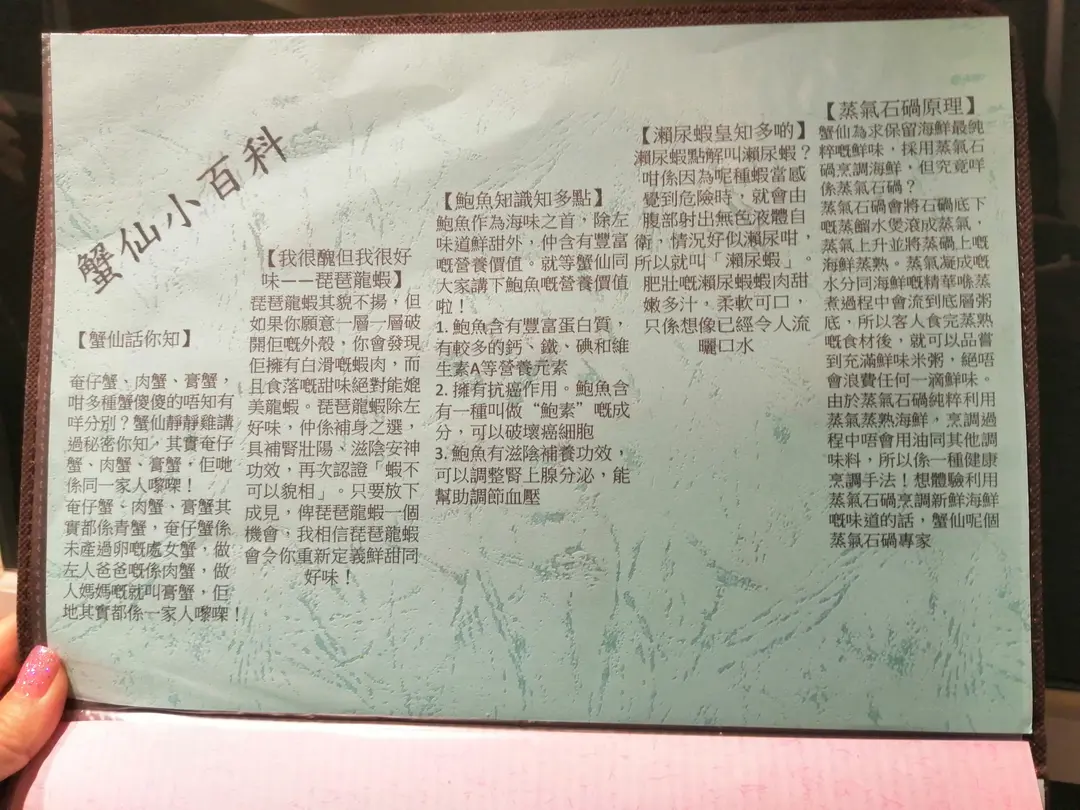 蟹仙小百科
【蟹仙話你知】
奄仔蟹、肉蟹、膏蟹，
咁多種蟹傻傻的唔知有
咩分別？蟹仙靜靜雞講
過秘密你知，其實奄仔
蟹、肉蟹、膏蟹，佢哋
係同一家人嚟㗎！
奄仔蟹、肉蟹、膏蟹其
實都係青蟹，奄仔蟹係
未產過卵嘅處女蟹，做
左人爸爸嘅係肉蟹，做
人媽媽嘅就叫膏蟹，佢
地其實都係一家人嚟㗎！
【我很醜但我很好
味——琵琶龍蝦】
琵琶龍蝦其貌不揚，但
如果你願意一層一層破
開佢嘅外殼，你會發現
佢擁有白滑嘅蝦肉，而
且食落嘅甜味絕對能媲
美龍蝦。琵琶龍蝦除左
好味，仲係補身之選，
具補腎壯陽、滋陰安神
功效，再次認證「蝦不
可以貌相」。只要放下
成見，俾琵琶龍蝦一個
機會，我相信琵琶龍蝦
會令你重新定義鮮甜同
好味！
【鮑魚知識知多點】
鮑魚作為海味之首，除左
味道鮮甜外，仲含有豐富
嘅營養價值。就等蟹仙同
大家講下鮑魚嘅營養價值
啦！
1. 鮑魚含有豐富蛋白質，
有較多的鈣、鐵、碘和維
生素A等營養元素
2. 擁有抗癌作用。鮑魚含
有一種叫做“鮑素”嘅成
分，可以破壞癌細胞
3. 鮑魚有滋陰補養功效，
可以調整腎上腺分泌，能
幫助調節血壓
【瀨尿蝦皇知多啲】
瀨尿蝦點解叫瀨尿蝦？
咁係因為呢種蝦當感
覺到危險時，就會由
腹部射出無色液體自
衛，情況好似瀨尿咁，
所以就叫「瀨尿蝦」。
肥壯嘅瀨尿蝦蝦肉甜
嫩多汁，柔軟可口，
只係想像已經令人流
曬口水
【蒸氣石鍋原理】
蟹仙為求保留海鮮最純
粹嘅鮮味，採用蒸氣石
鍋烹調海鮮，但究竟咩
係蒸氣石鍋？
蒸氣石鍋會將石鍋底下
嘅蒸餾水煲滾成蒸氣，
蒸氣上升並將蒸鍋上嘅
海鮮蒸熟。蒸氣凝成嘅
水分同海鮮嘅精華喺蒸
煮過程中會流到底層粥
底，所以客人食完蒸熟
嘅食材後，就可以品嘗
到充滿鮮味米粥，絕唔
會浪費任何一滴鮮味。
由於蒸氣石鍋純粹利用
蒸氣蒸熟海鮮，烹調過
程中唔會用油同其他調
味料，所以係一種健康
烹調手法！想體驗利用
蒸氣石鍋烹調新鮮海鮮
嘅味道的話，蟹仙呢個
蒸氣石鍋專家